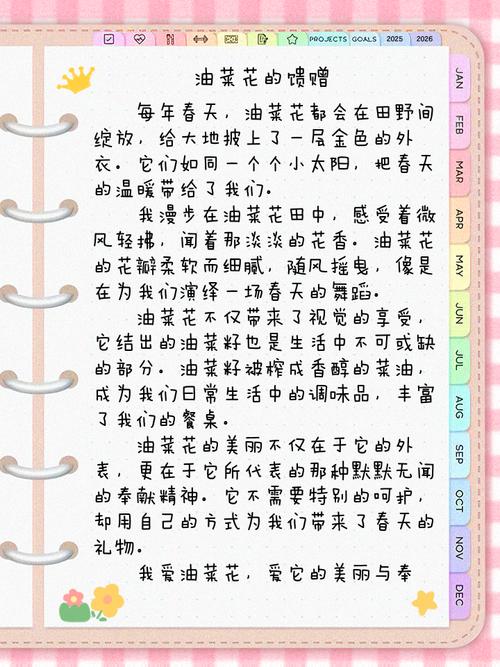 PROJECTS GOALS 2025 2026
油菜花的馈赠
每年春天，油菜花都会在田野间
绽放，给大地披上了一层金色的外
衣。它们如同一个个小太阳，把春天
的温暖带给了我们。
我漫步在油菜花田中，感受着微
风轻拂，闻着那淡淡的花香。油菜花
的花瓣柔软而细腻，随风摇曳，像是
在为我们演绎一场春天的舞蹈。
油菜花不仅带来了视觉的享受，
它结出的油菜籽也是生活中不可或缺
的部分。油菜籽被榨成香醇的菜油，
成为我们日常生活中的调味品，丰富
了我们的餐桌。
油菜花的美丽不仅在于它的外
表，更在于它所代表的那种默默无闻
的奉献精神。它不需要特别的呵护，
却用自己的方式为我们带来了春天的
礼物。
我爱油菜花，爱它的美丽与奉
JAN
FEB
MAR
APR
MAY
JUN
JUL
AUG
SEP
OCT
NOV
DEC